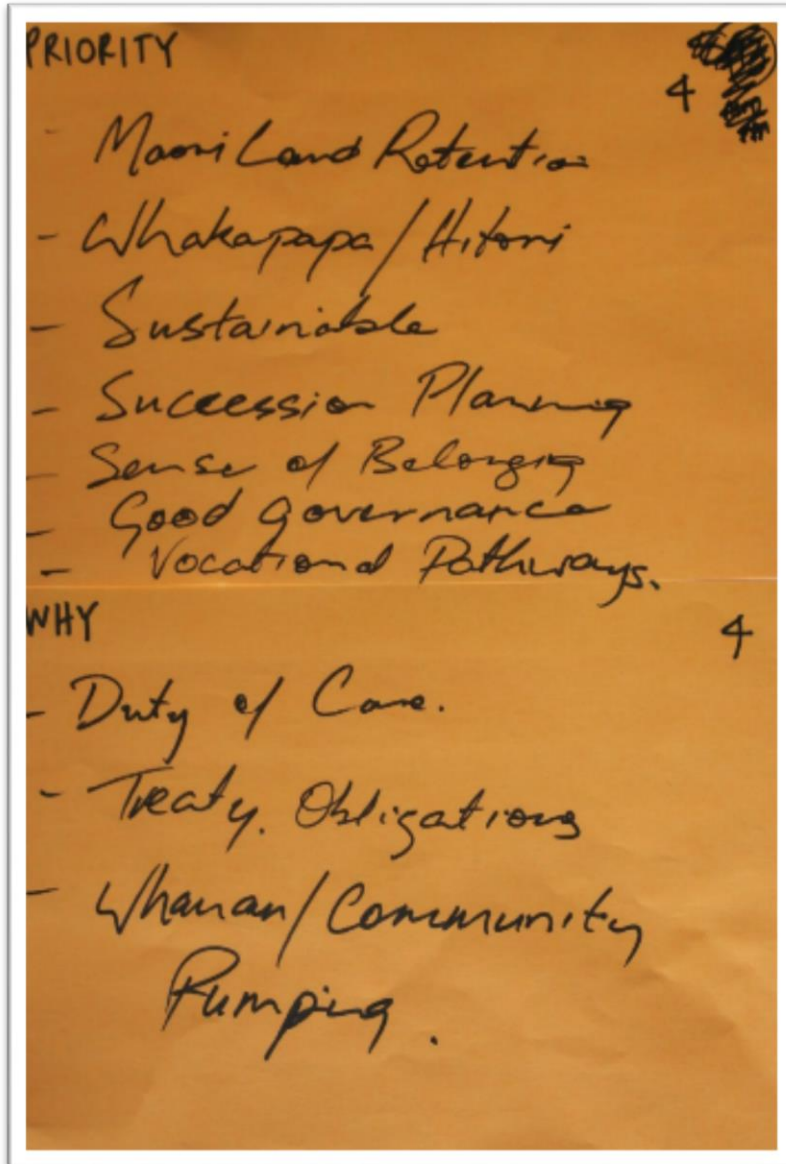 PRIORITY
4
- Maori Land Retention
- Whakapapa/Hitori
- Sustainable
- Succession Planning
- Sense of Belonging
- Good governance
- Vocational Pathways.
WHY
4
- Duty of Care.
- Treaty. Obligations
- Whanau/Community
Pumping.